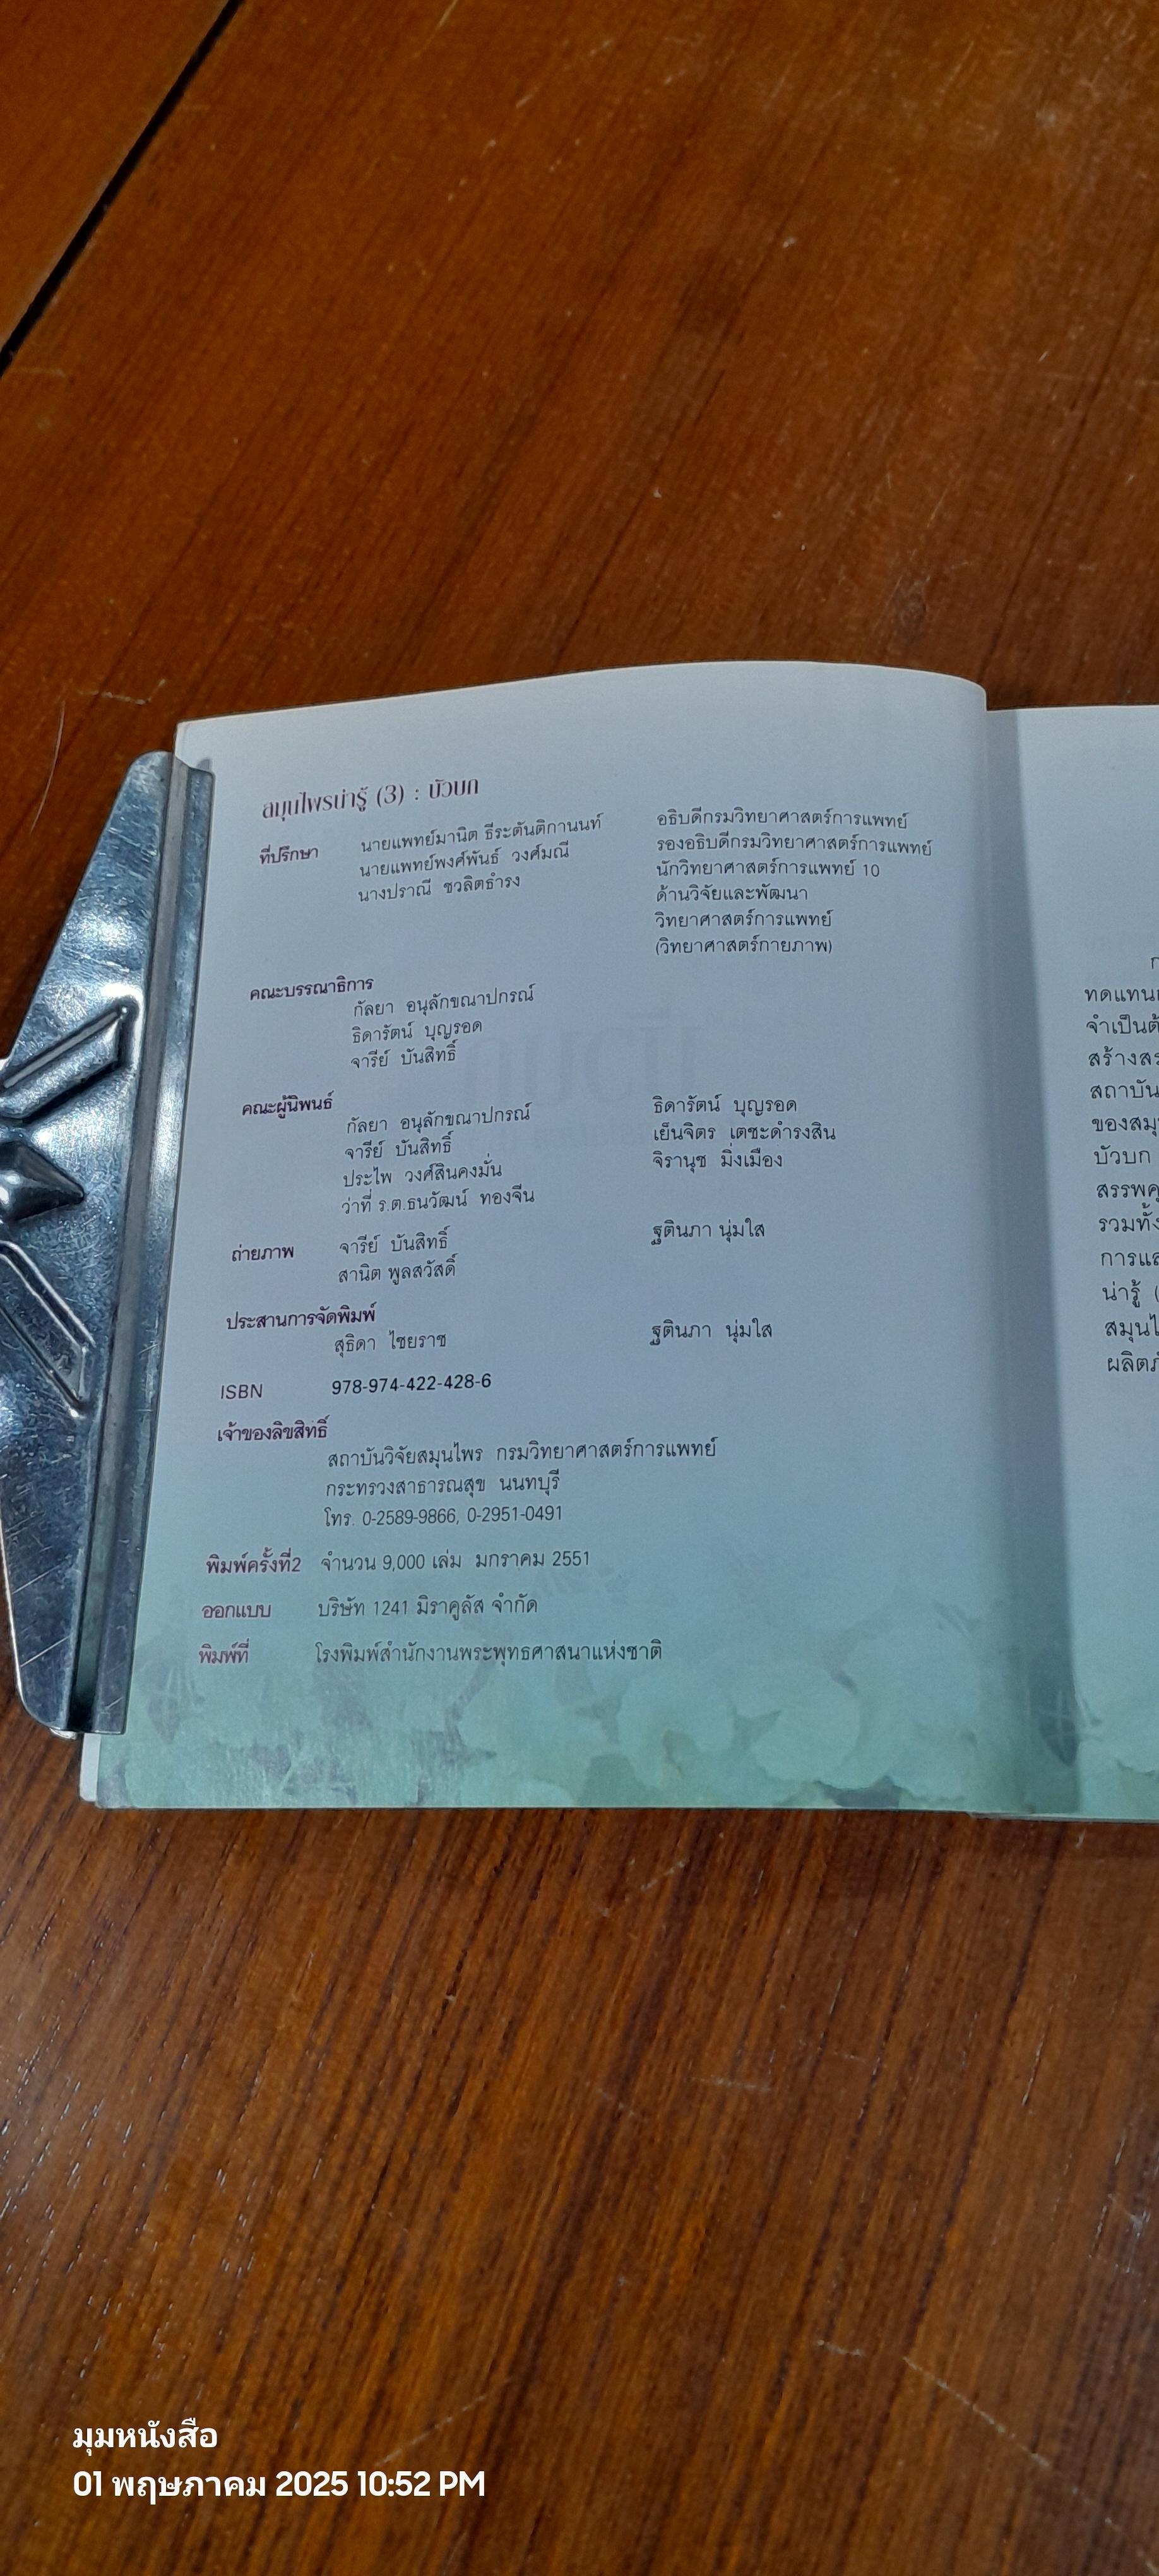 สมุนไพรน่ารู้ (3) : บัวบก
ที่ปรึกษา นายแพทย์มานิต ธีระตันติกานนท์ อธิบดีกรมวิทยาศาสตร์การแพทย์
นายแพทย์พงศ์พันธ์ วงศ์มณี รองอธิบดีกรมวิทยาศาสตร์การแพทย์
นางปราณี ชวลิตธำรง นักวิทยาศาสตร์การแพทย์ 10
ด้านวิจัยและพัฒนา
วิทยาศาสตร์การแพทย์
(วิทยาศาสตร์กายภาพ)
คณะบรรณาธิการ
กัลยา อนุลักขณาปกรณ์
ธิดารัตน์ บุญรอด
จารีย์ บันสิทธิ์
คณะผู้นิพนธ์
กัลยา อนุลักขณาปกรณ์ ธิดารัตน์ บุญรอด
จารีย์ บันสิทธิ์ เย็นจิตร เตชะดำรงสิน
ประไพ วงศ์สินคงมั่น จิรานุช มิ่งเมือง
ว่าที่ ร.ต.ธนวัฒน์ ทองจีน
ถ่ายภาพ จารีย์ บันสิทธิ์ ฐตินภา นุ่มใส
สานิต พูลสวัสดิ์
ประสานการจัดพิมพ์
สุธิดา ไชยราช ฐตินภา นุ่มใส
ISBN 978-974-422-428-6
เจ้าของลิขสิทธิ์
สถาบันวิจัยสมุนไพร กรมวิทยาศาสตร์การแพทย์
กระทรวงสาธารณสุข นนทบุรี
โทร. 0-2589-9866, 0-2951-0491
พิมพ์ครั้งที่2 จำนวน 9,000 เล่ม มกราคม 2551
ออกแบบ บริษัท 1241 มิราคูลัส จำกัด
พิมพ์ที่ โรงพิมพ์สำนักงานพระพุทธศาสนาแห่งชาติ
ทดแทน
สร้าง
สถาบัน
บัวบก
รวมทั้ง
น่ารู้
มุมหนังสือ
01 พฤษภาคม 2025 10:52 PM